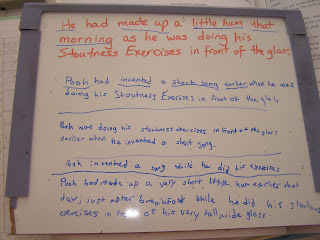 He had made up a little hum that
morning as he was doing his
Stoutness Exercises in front of the glass.
Pooh had invented a short song earlier when he was
doing his Stoutness Exercises in front of the glass
Pooh was doing his stoutness exercises in front of the glass
earlier when he invented a short song.
Pooh invented a song while he did his exercises
Pooh had made up a very short little hum earlier that
day, just after breakfast while he did his stoutness
exercises in front of his very tall wide glass.